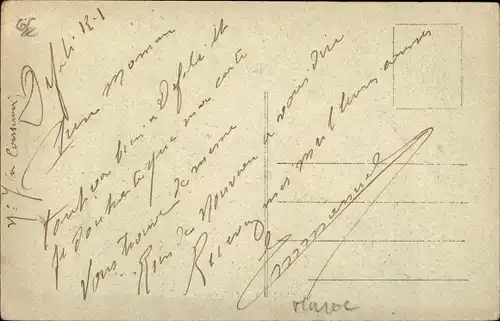 Defali 12-1
Chère Maman
Tout va bien à Defali et
je souhaite que ma carte
vous trouve de même
Rien de nouveau à vous dire
Recevez mes meilleurs
Emmanuel
Maroc